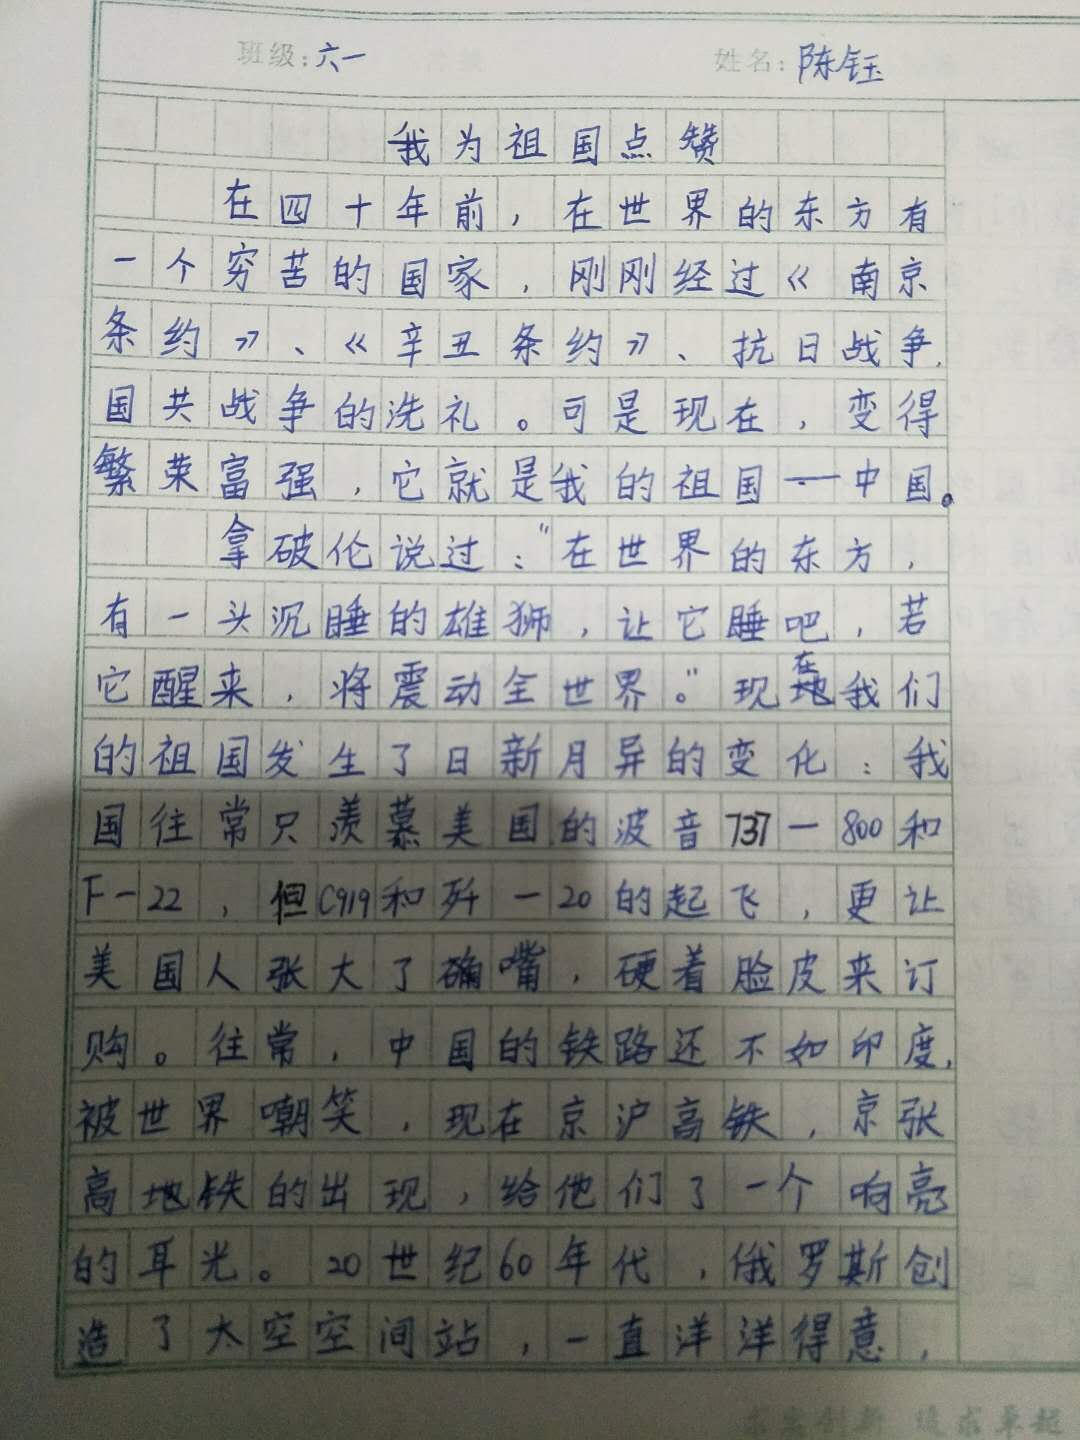 班级:六一 姓名:陈钰
我为祖国点赞
在四十年前,在世界的东方有
一个穷苦的国家,刚刚经过《南京
条约》、《辛丑条约》、抗日战争,
国共战争的洗礼。可是现在,变得
繁荣富强,它就是我的祖国——中国。
拿破伦说过:“在世界的东方,
有一头沉睡的雄狮,让它睡吧,若
它醒来,将震动全世界。”现在我们
的祖国发生了日新月异的变化:我
国往常只羡慕美国的波音737—800和
F—22,但C919和歼—20的起飞,更让
美国人张大了嘴,硬着脸皮来订
购。往常,中国的铁路还不如印度,
被世界嘲笑,现在京沪高铁,京张
高地铁的出现,给他们了一个响亮
的耳光。20世纪60年代,俄罗斯创
造了太空空间站,一直洋洋得意,